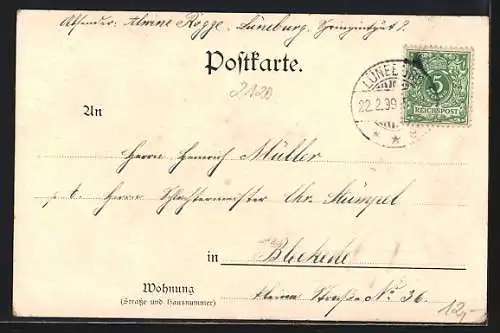 Absender: Alwine Rogge. Lüneburg,
Postkarte.
2120
LÜNEBURG
22.2.99
5
REICHSPOST
An
Herrn Heinrich Müller
Herrn Schlachtermeister Chr. Stümpel
in Bleckede
Wohnung
(Straße und Hausnummer)
kleine Straße No 36.
12,-